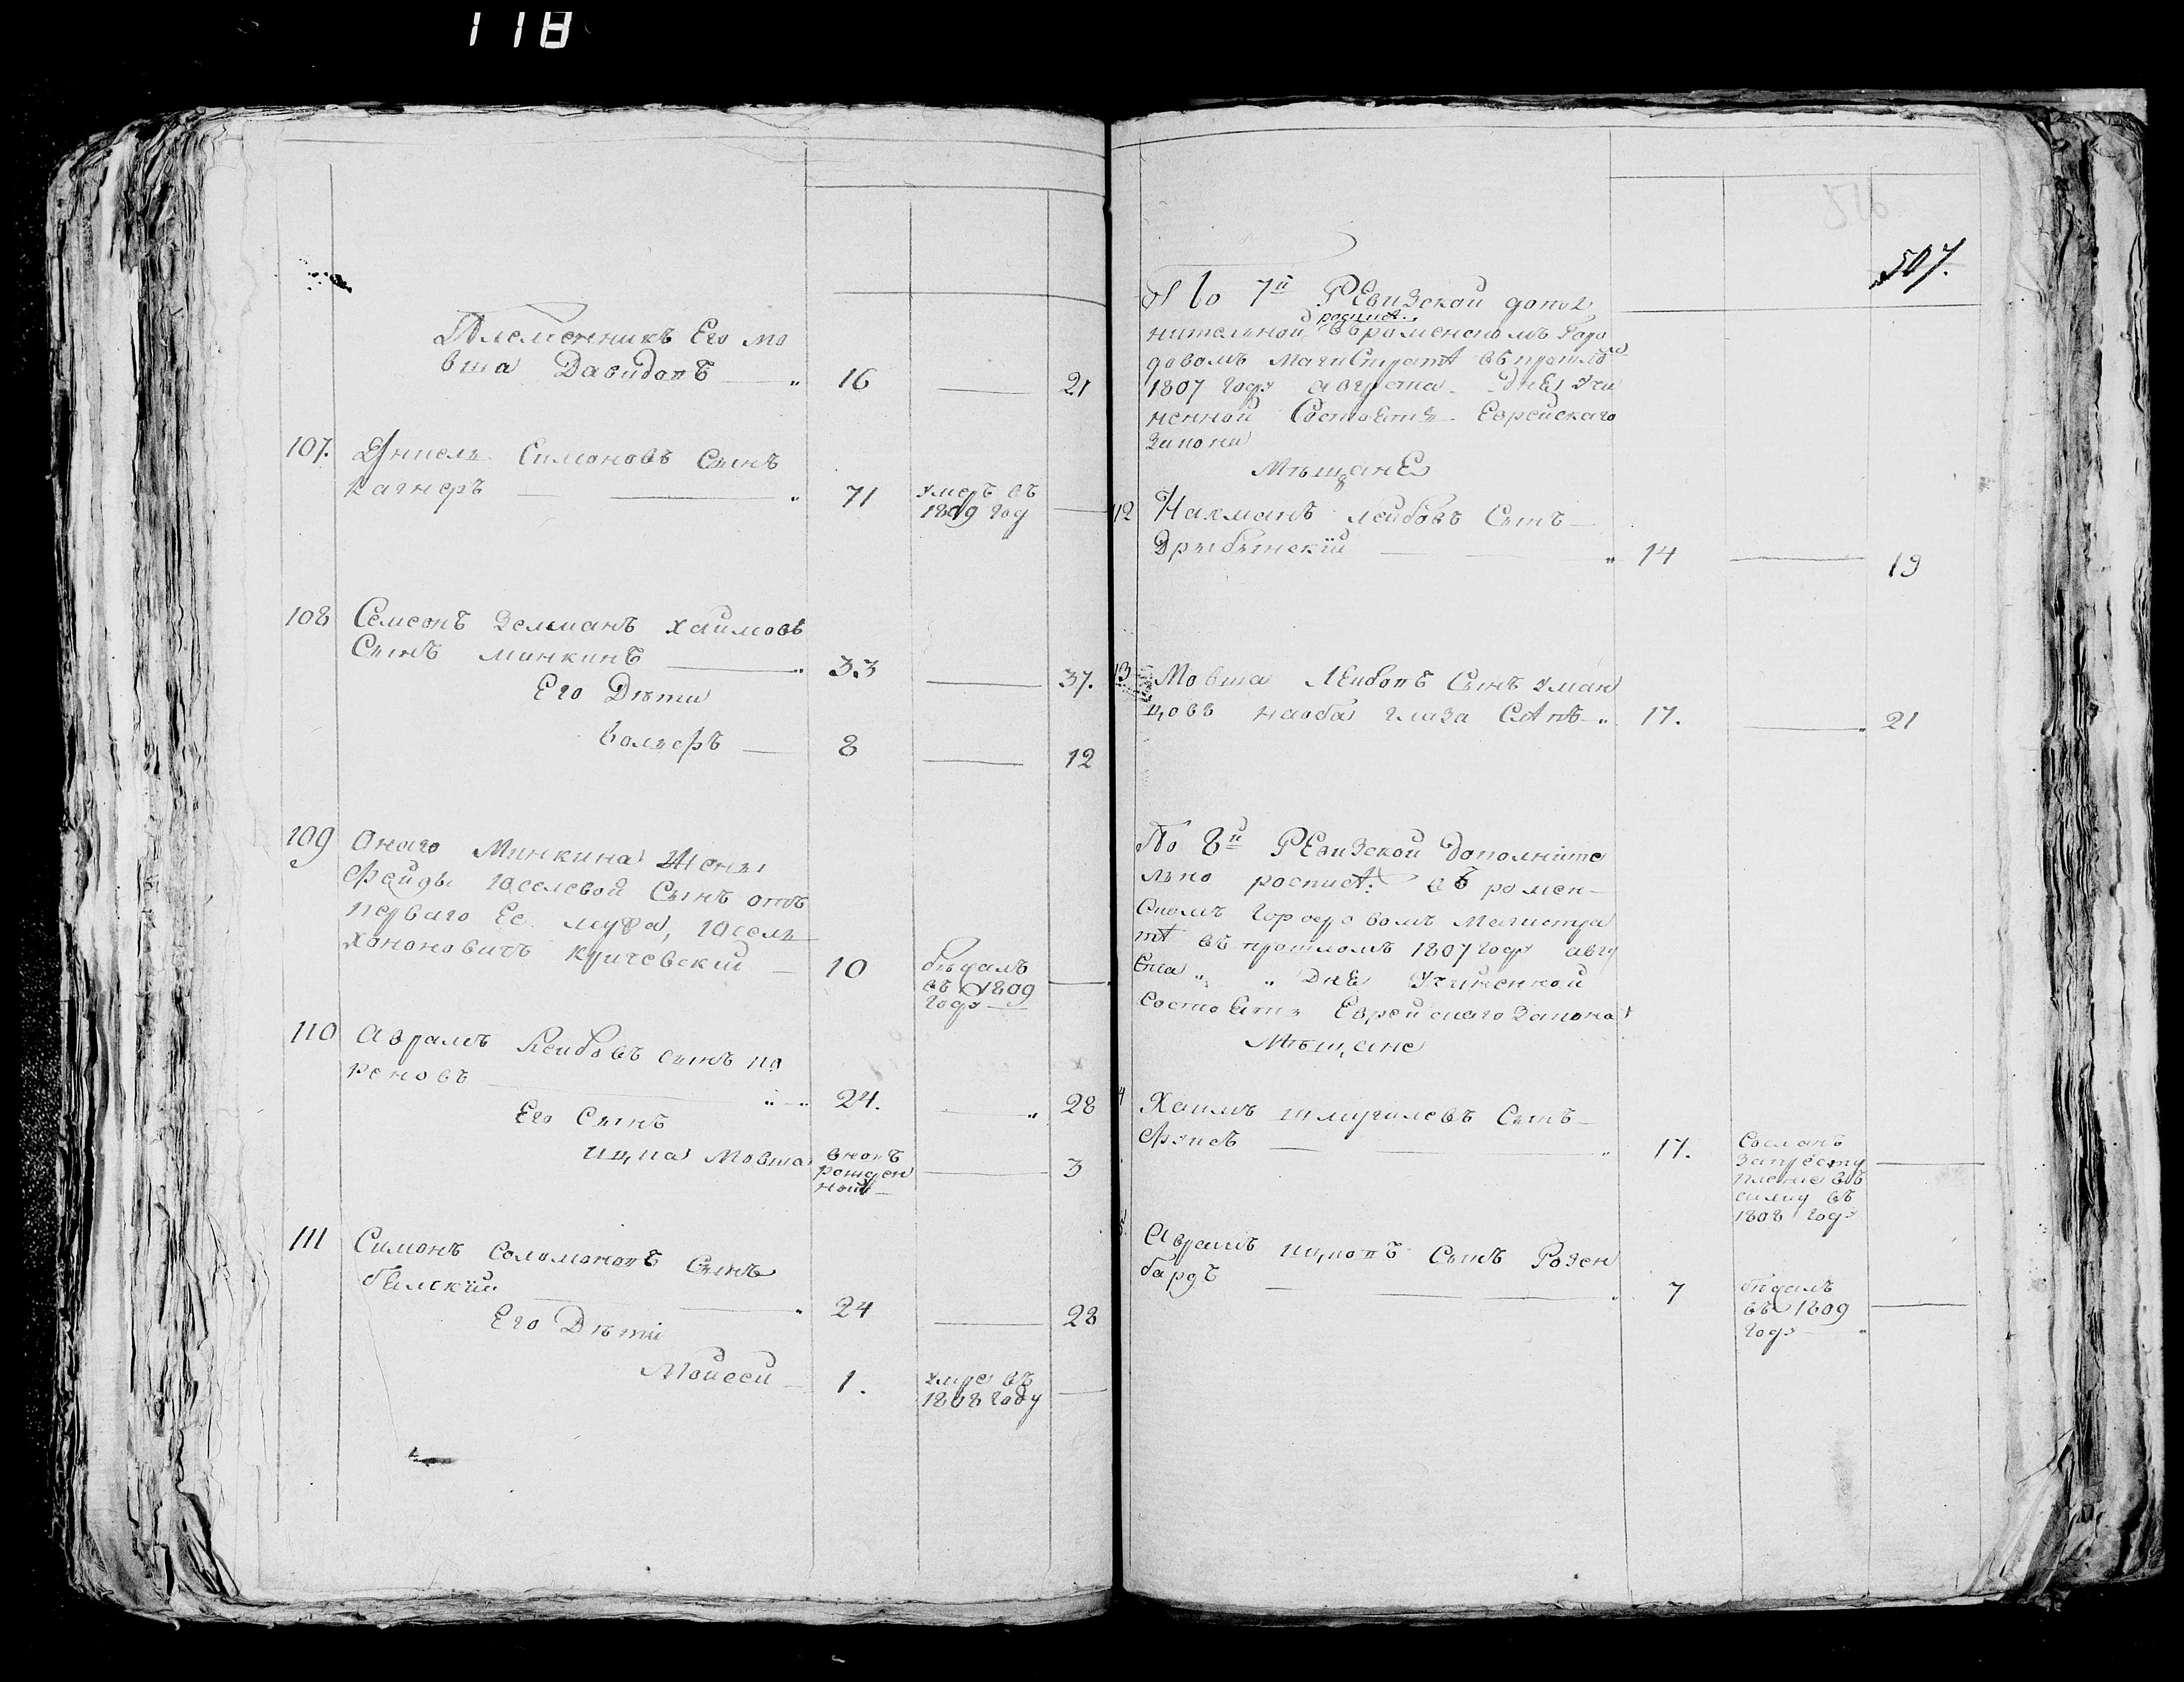 118
Племенникъ Его мо
вша Давидовъ — 16 — 21
107. Симоновъ Сынъ
Вагнеръ — 71 умеръ въ
1809 год —
108 Семеонъ Зельманъ Хаимовъ
Сынъ Минкинъ — 33 — 37.
Его Дѣти
Вольфъ — 8 — 12
109 Онаго Минкина Жены
Фейды Юселевой Сынъ отъ
перваго Ее мужа, Юсель
Хононовичъ Кричевский — 10 бѣжалъ
въ 1809
году —
110 Аврамъ Лейбовъ сынъ по
реновъ — 24. — 28
Его Сынъ
Ицка Мовша вновь
рожден
ной — 3
111 Симонъ Соломоновъ Сынъ
бѣлскій — 24 — 28
Его Дѣти
Мойсей — 1. умре въ
1808 году —
507.
По 7й Ревизской допол
росписѣ
нительной въ роменскомъ Горо
довомъ Магистратѣ въ прошломъ
1807 году августа дня учи
ненной Состоятъ Еврейскаго
Закона
Мѣщане
12 Нахманъ Лейбовъ Сынъ —
Дрыбинскій — 14 — 19
13 Мовша Лейбовъ Сынъ Уман
цовъ на оба глаза Слѣпъ 17. — 21
По 8й Ревизской Дополните
льно росписѣ въ ромен-
скомъ Городовомъ Магистра
тѣ въ прошломъ 1807 году авгу
ста дня Учиненной
состоятъ Еврейскаго Закона
Мѣщане
4 Хаимъ Шмуйлевъ Сынъ —
Фуксъ — 17. Сосланъ
за престу
пление въ
силку въ
1808 году —
5 Аврамъ Ицковъ Сынъ Розен
бардъ — 7 бѣжалъ
въ 1809
году —